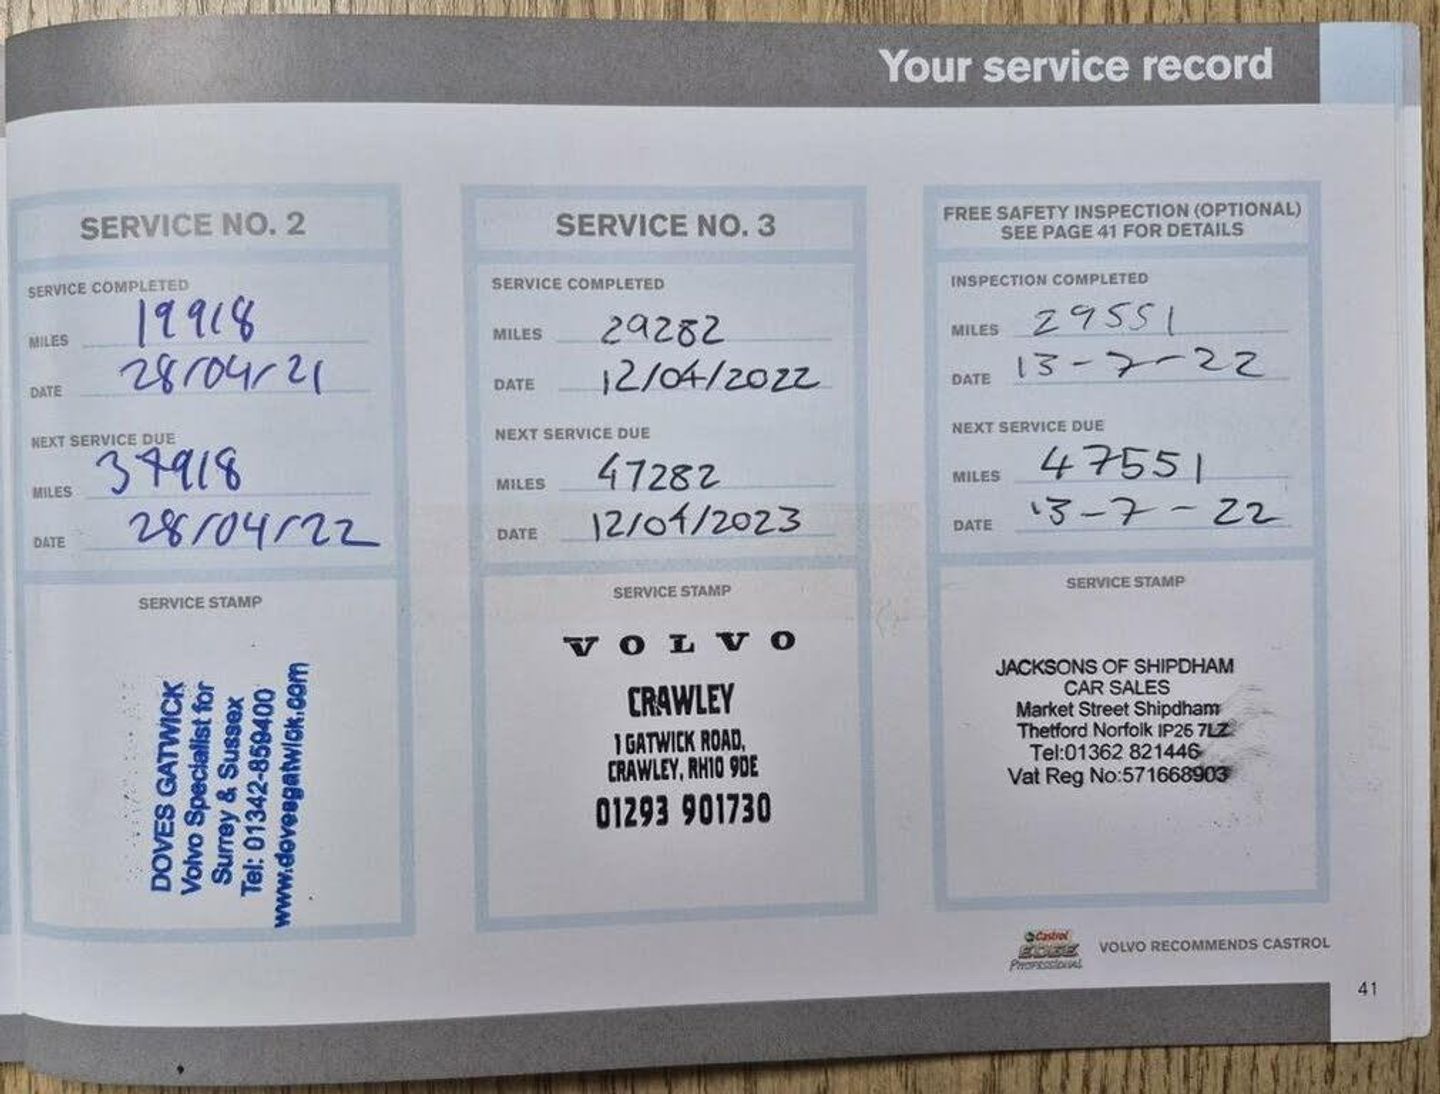 Your service record
SERVICE NO. 2
SERVICE COMPLETED
MILES 19918
DATE 28/04/21
NEXT SERVICE DUE
MILES 37918
DATE 28/04/22
SERVICE STAMP
DOVES GATWICK
Volvo Specialist for
Surrey & Sussex
Tel: 01342-859400
www.dovesgatwick.com
SERVICE NO. 3
SERVICE COMPLETED
MILES 29282
DATE 12/04/2022
NEXT SERVICE DUE
MILES 47282
DATE 12/04/2023
SERVICE STAMP
VOLVO
CRAWLEY
1 GATWICK ROAD,
CRAWLEY, RH10 9DE
01293 901730
FREE SAFETY INSPECTION (OPTIONAL)
SEE PAGE 41 FOR DETAILS
INSPECTION COMPLETED
MILES 29551
DATE 13-7-22
NEXT SERVICE DUE
MILES 47551
DATE 13-7-22
SERVICE STAMP
JACKSONS OF SHIPDHAM
CAR SALES
Market Street Shipdham
Thetford Norfolk IP25 7LZ
Tel:01362 821446
Vat Reg No:571668903
Castrol
EDGE
PROFESSIONAL
VOLVO RECOMMENDS CASTROL
41